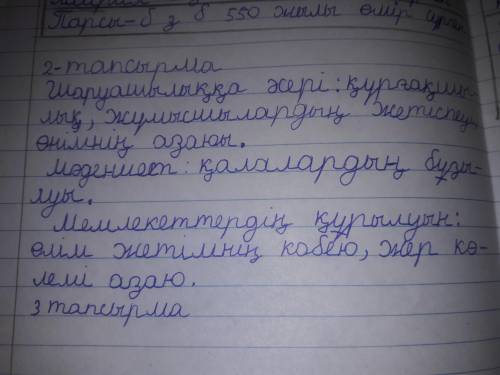 Парсы-б з б 550 жылы өмір сүрген
2-тапсырма
Шаруашылыққа жері: құрғақшы-
лық, жумысшылардың жетіспеу,
өнімнің азаюы.
Мәдениет: қалалардың бұзы-
луы.
Мемлекеттердің құрылуын:
өлім жетімнің кобею, жер кө-
лемі азаю.
3 тапсырма